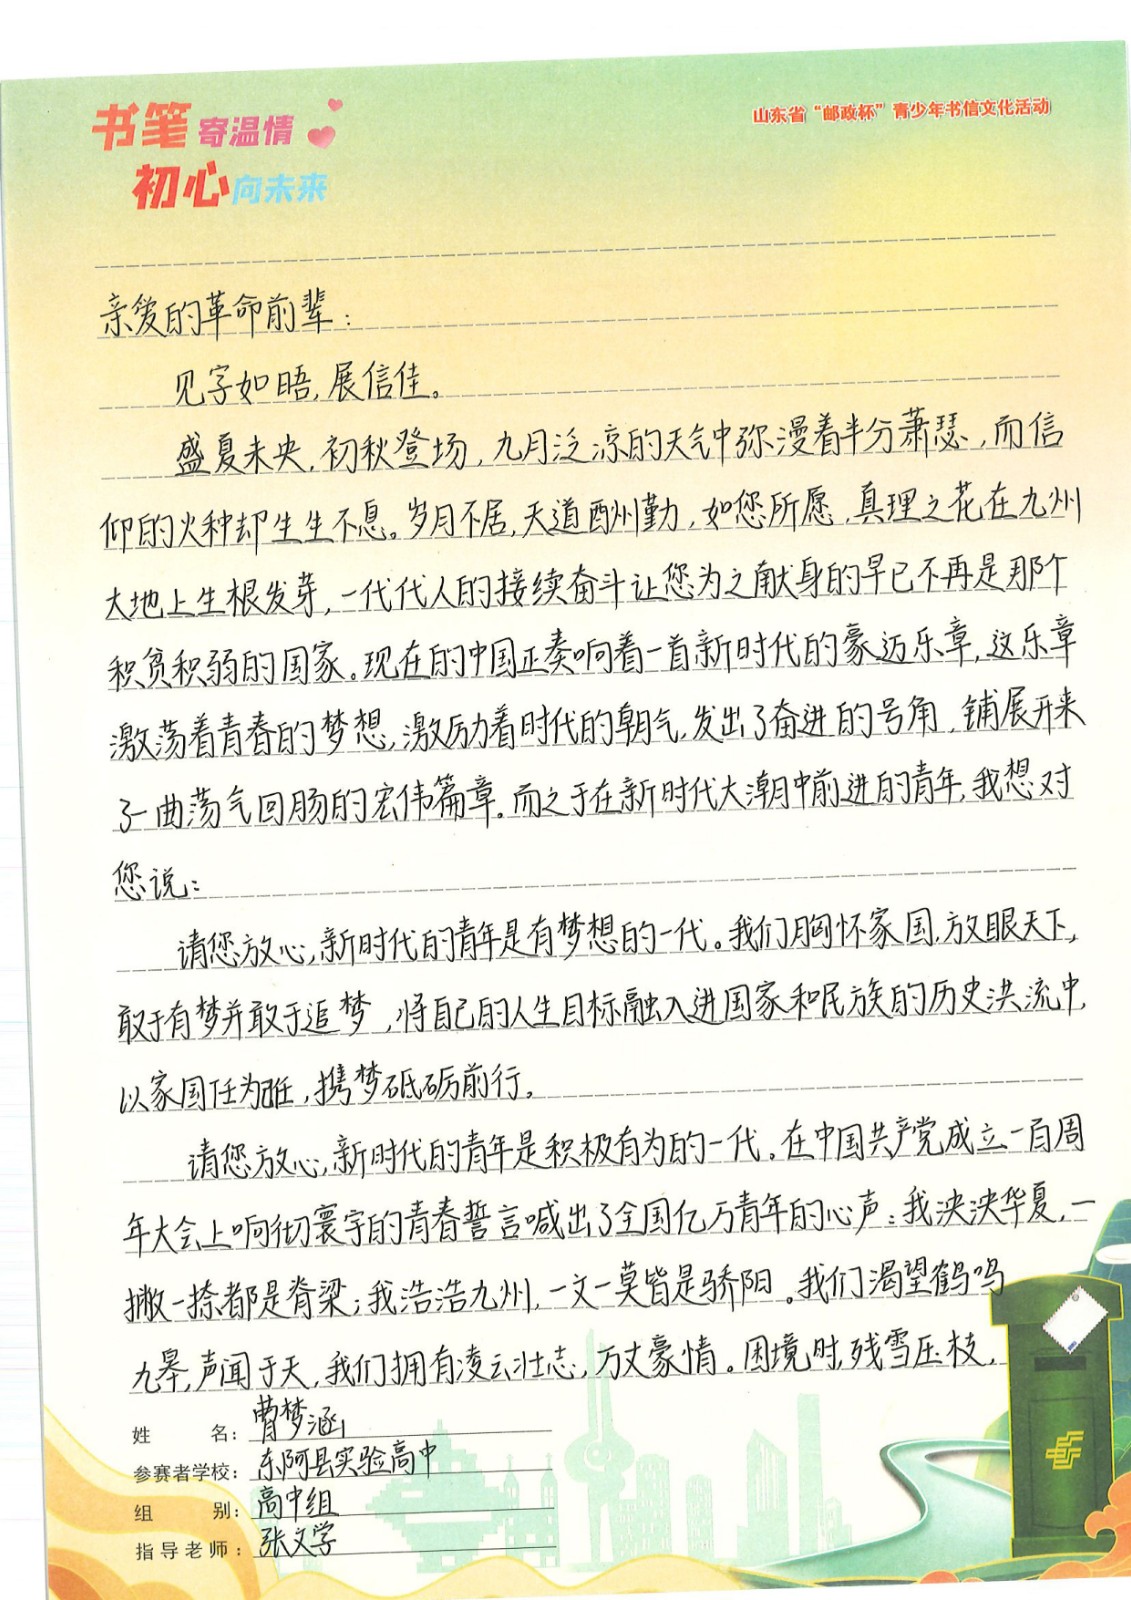 书笔寄温情
初心向未来
山东省“邮政杯”青少年书信文化活动
亲爱的革命前辈：
见字如晤，展信佳。
盛夏未央，初秋登场，九月泛凉的天气中弥漫着半分萧瑟，而信
仰的火种却生生不息。岁月不居，天道酬勤，如您所愿，真理之花在九州
大地上生根发芽，一代代人的接续奋斗让您为之献身的早已不再是那个
积贫积弱的国家。现在的中国正奏响着一首新时代的豪迈乐章，这乐章
激荡着青春的梦想，激励着时代的朝气，发出了奋进的号角，铺展开来
了一曲荡气回肠的宏伟篇章。而之于在新时代大潮中前进的青年，我想对
您说：
请您放心，新时代的青年是有梦想的一代。我们胸怀家国，放眼天下，
敢于有梦并敢于追梦，将自己的人生目标融入进国家和民族的历史洪流中，
以家国任为，携梦砥砺前行。
请您放心，新时代的青年是积极有为的一代。在中国共产党成立一百周
年大会上响彻寰宇的青春誓言喊出了全国亿万青年的心声：我泱泱华夏，一
撇一捺都是脊梁；我浩浩九州，一文一莫皆是骄阳。我们渴望鹤鸣
九皋，声闻于天，我们拥有凌云壮志，万丈豪情。困境时，残雪压枝，
姓名：曹梦涵
参赛者学校：东阿县实验高中
组别：高中组
指导老师：张文学